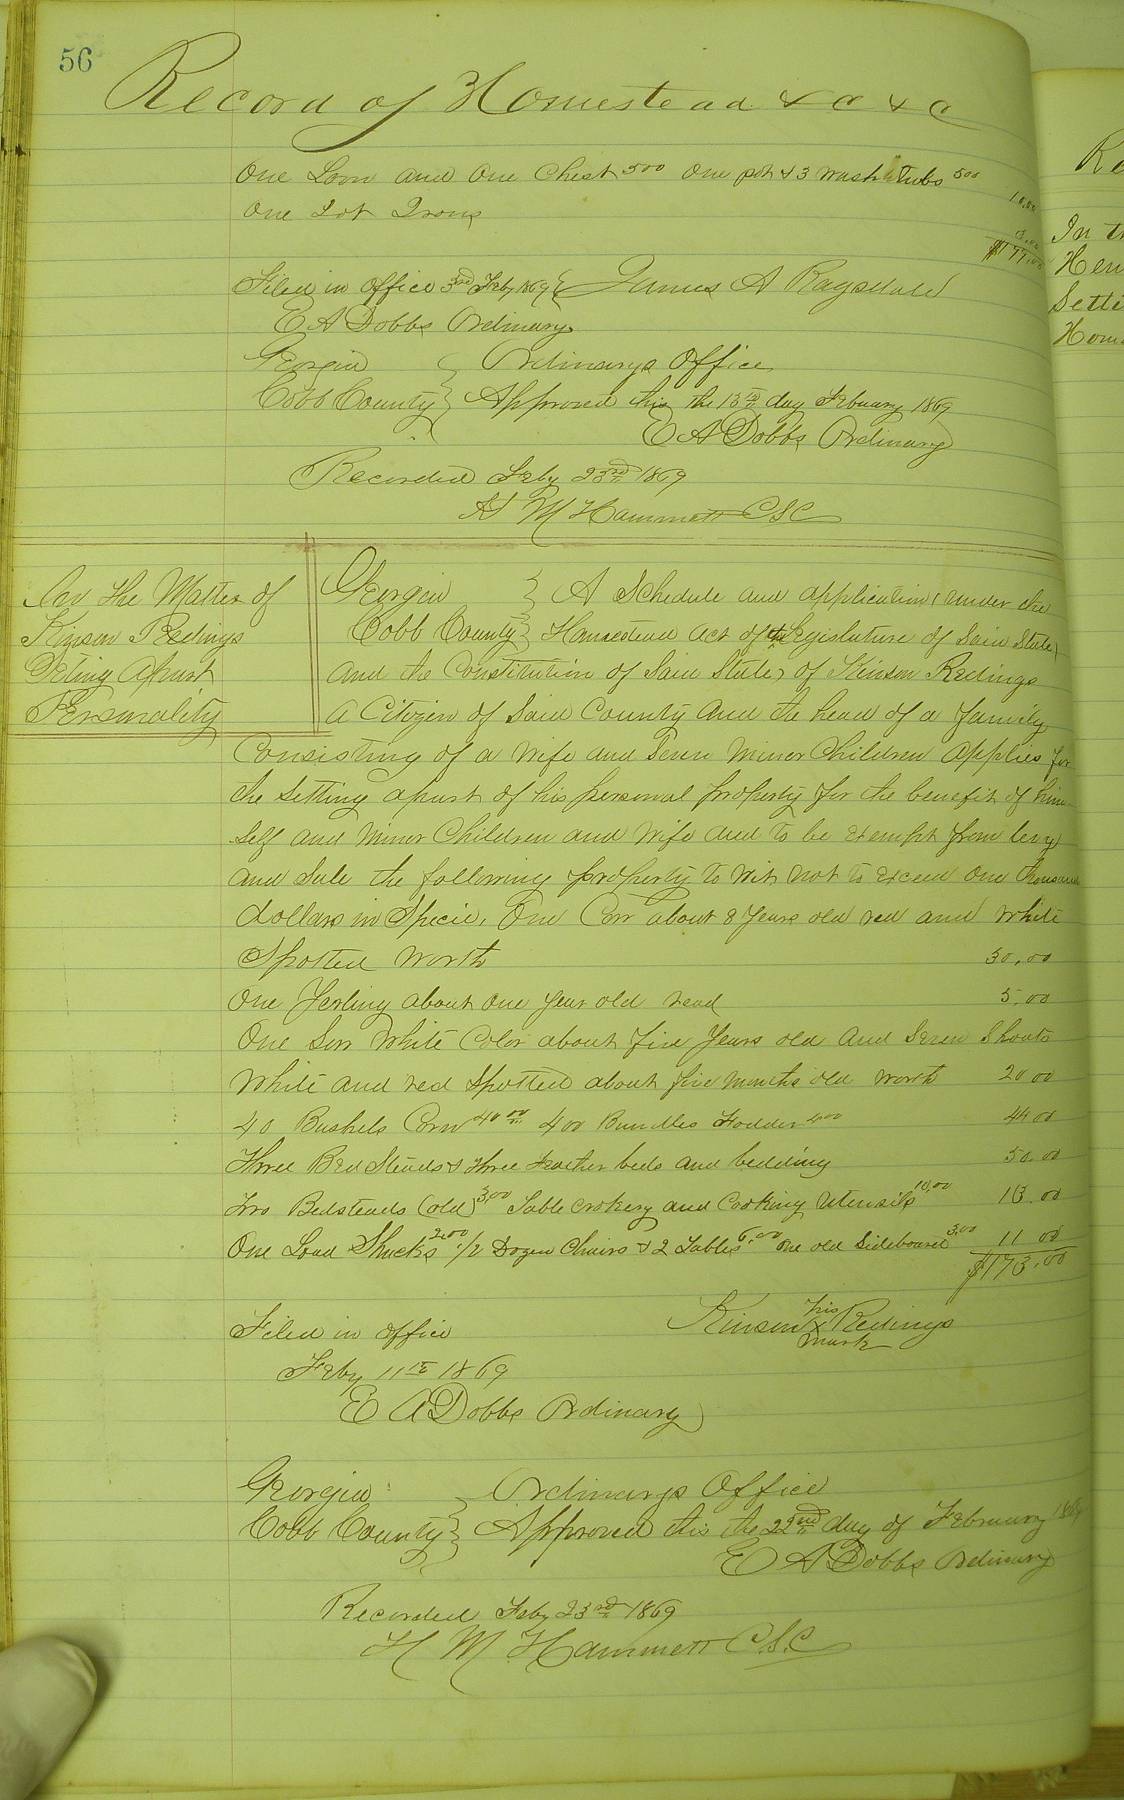 56
Record of Homestead &c &c
One Loom and One Chest 500 One pot & 3 wash Tubs 500
10.00
One Lot Irons
3.00
$177.00
Filed in office 3rd Feby 1869 } James A Ragsdale
E A Dobbs Ordinary
Georgia } Ordinarys Office
Cobb County } Approved this the 13th day February 1869
E A Dobbs Ordinary
Recorded Feby 23rd 1869
H M Hammett C S C
In the Matter of
Kinson Redings
Seting Apart
Personality
Georgia } A Schedule and application (under the
Cobb County } Homestead Act of the Legislature of Said State)
and the Constitution of Said State) of Kinson Redings
A Citizen of Said County and the head of a family
Consisting of a wife and Seven Minor Children Applies for
the Setting apart of his personal property for the benefit of him
self and Minor Children and Wife and to be exempt from levy
and Sale the following property to wit, not to exceed One thousand
dollars in Specie, One Cow about 8 Years old red and White
Spotted Worth 30.00
One Yerling about One year old read 5.00
One Sow White Color about five Years old and Seven Shouts
White and red Spotted about five months old worth 20 00
40 Bushels Corn 40 00 400 Bundles Fodder 400 44 00
Three Bed Steads & three Feather beds and bedding 50.00
Two Bedsteads (old) 3,00 Table Crokery and Cooking Utensils 10,00 13.00
One Load Shucks 2.00 1/2 Dozen Chairs & 2 Tables 6.00 One old Sideboard 3.00 11 00
$173.00
Filed in office
Kinson his X mark Redings
Feby 11th 1869
E A Dobbs Ordinary
Georgia } Ordinarys Office
Cobb County } Approved this the 22nd day of February 1869
E A Dobbs Ordinary
Recorded Feby 23rd 1869
H M Hammett C.S.C
In th
Hen
Setti
Hom